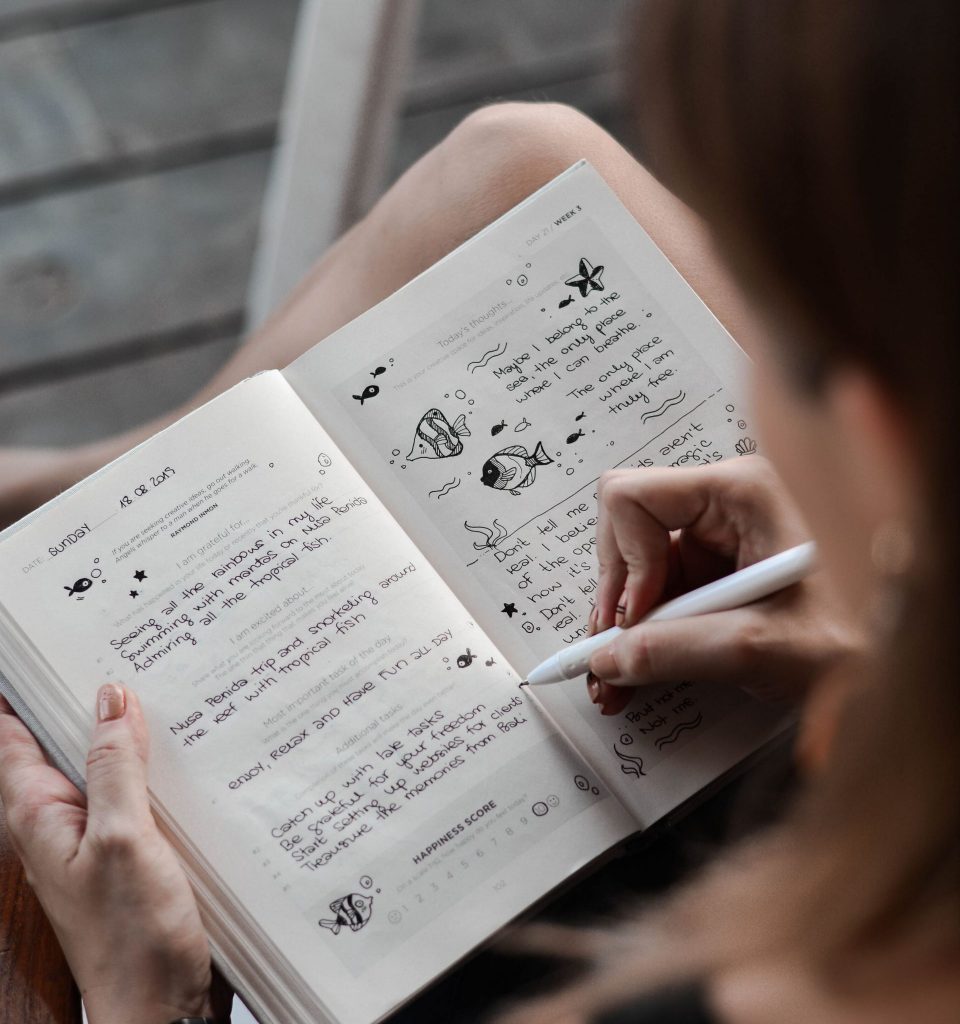 DATE: SUNDAY 18 08 2019
If you are seeking creative ideas, go out walking.
Angels whisper to a man when he goes for a walk.
RAYMOND INMON
I am grateful for...
Seeing all the rainbows in my life
Swimming with mantas on Nusa Penida
Admiring all the tropical fish.
I am excited about...
Nusa Penida trip and snorkeling around
the reef with tropical fish
Most important task of the day
ENJOY, RELAX AND HAVE FUN ALL DAY
Additional tasks
Catch up with late tasks
Be grateful for your freedom
Start setting up websites for clients
Treausure the memories from Bali
HAPPINESS SCORE
On a scale 1-10, how happy do you feel today?
1 2 3 4 5 6 7 8 9
102
DAY 21 / WEEK 3
Today's thoughts...
This is your creative space for ideas, inspiration,
Maybe I belong to the
sea. the only place
where I can breathe.
The only place
where I am
truly free.
aren't
Don't tell me magic
real. I believe
of the
now it's
Don't tell
But not
Not me.